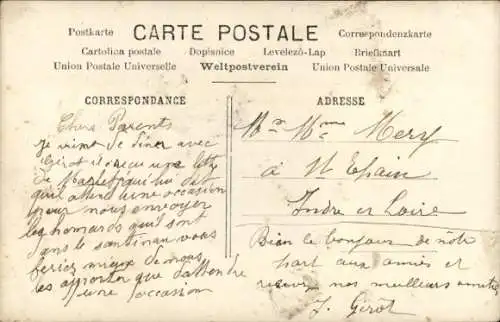 Postkarte CARTE POSTALE Correspondenzkarte
Cartolina postale Dopisnice Levelező-Lap Briefkaart
Union Postale Universelle Weltpostverein Union Postale Universale
CORRESPONDANCE
Chers Parents
je vient de diner avec
Girot il a reçu une lettre
de qui lui dit
qu'il attend une occasion
pour nous envoyer
les homards qu'il sont
dans le vous
feriez mieux de nous
les apporter que d'attendre
une occasion
ADRESSE
Mr Mme Mery
à St Epain
Indre et Loire
Bien le bonjour de notre
part aux amies et
recevez nos meilleurs amitiés
J. Girot